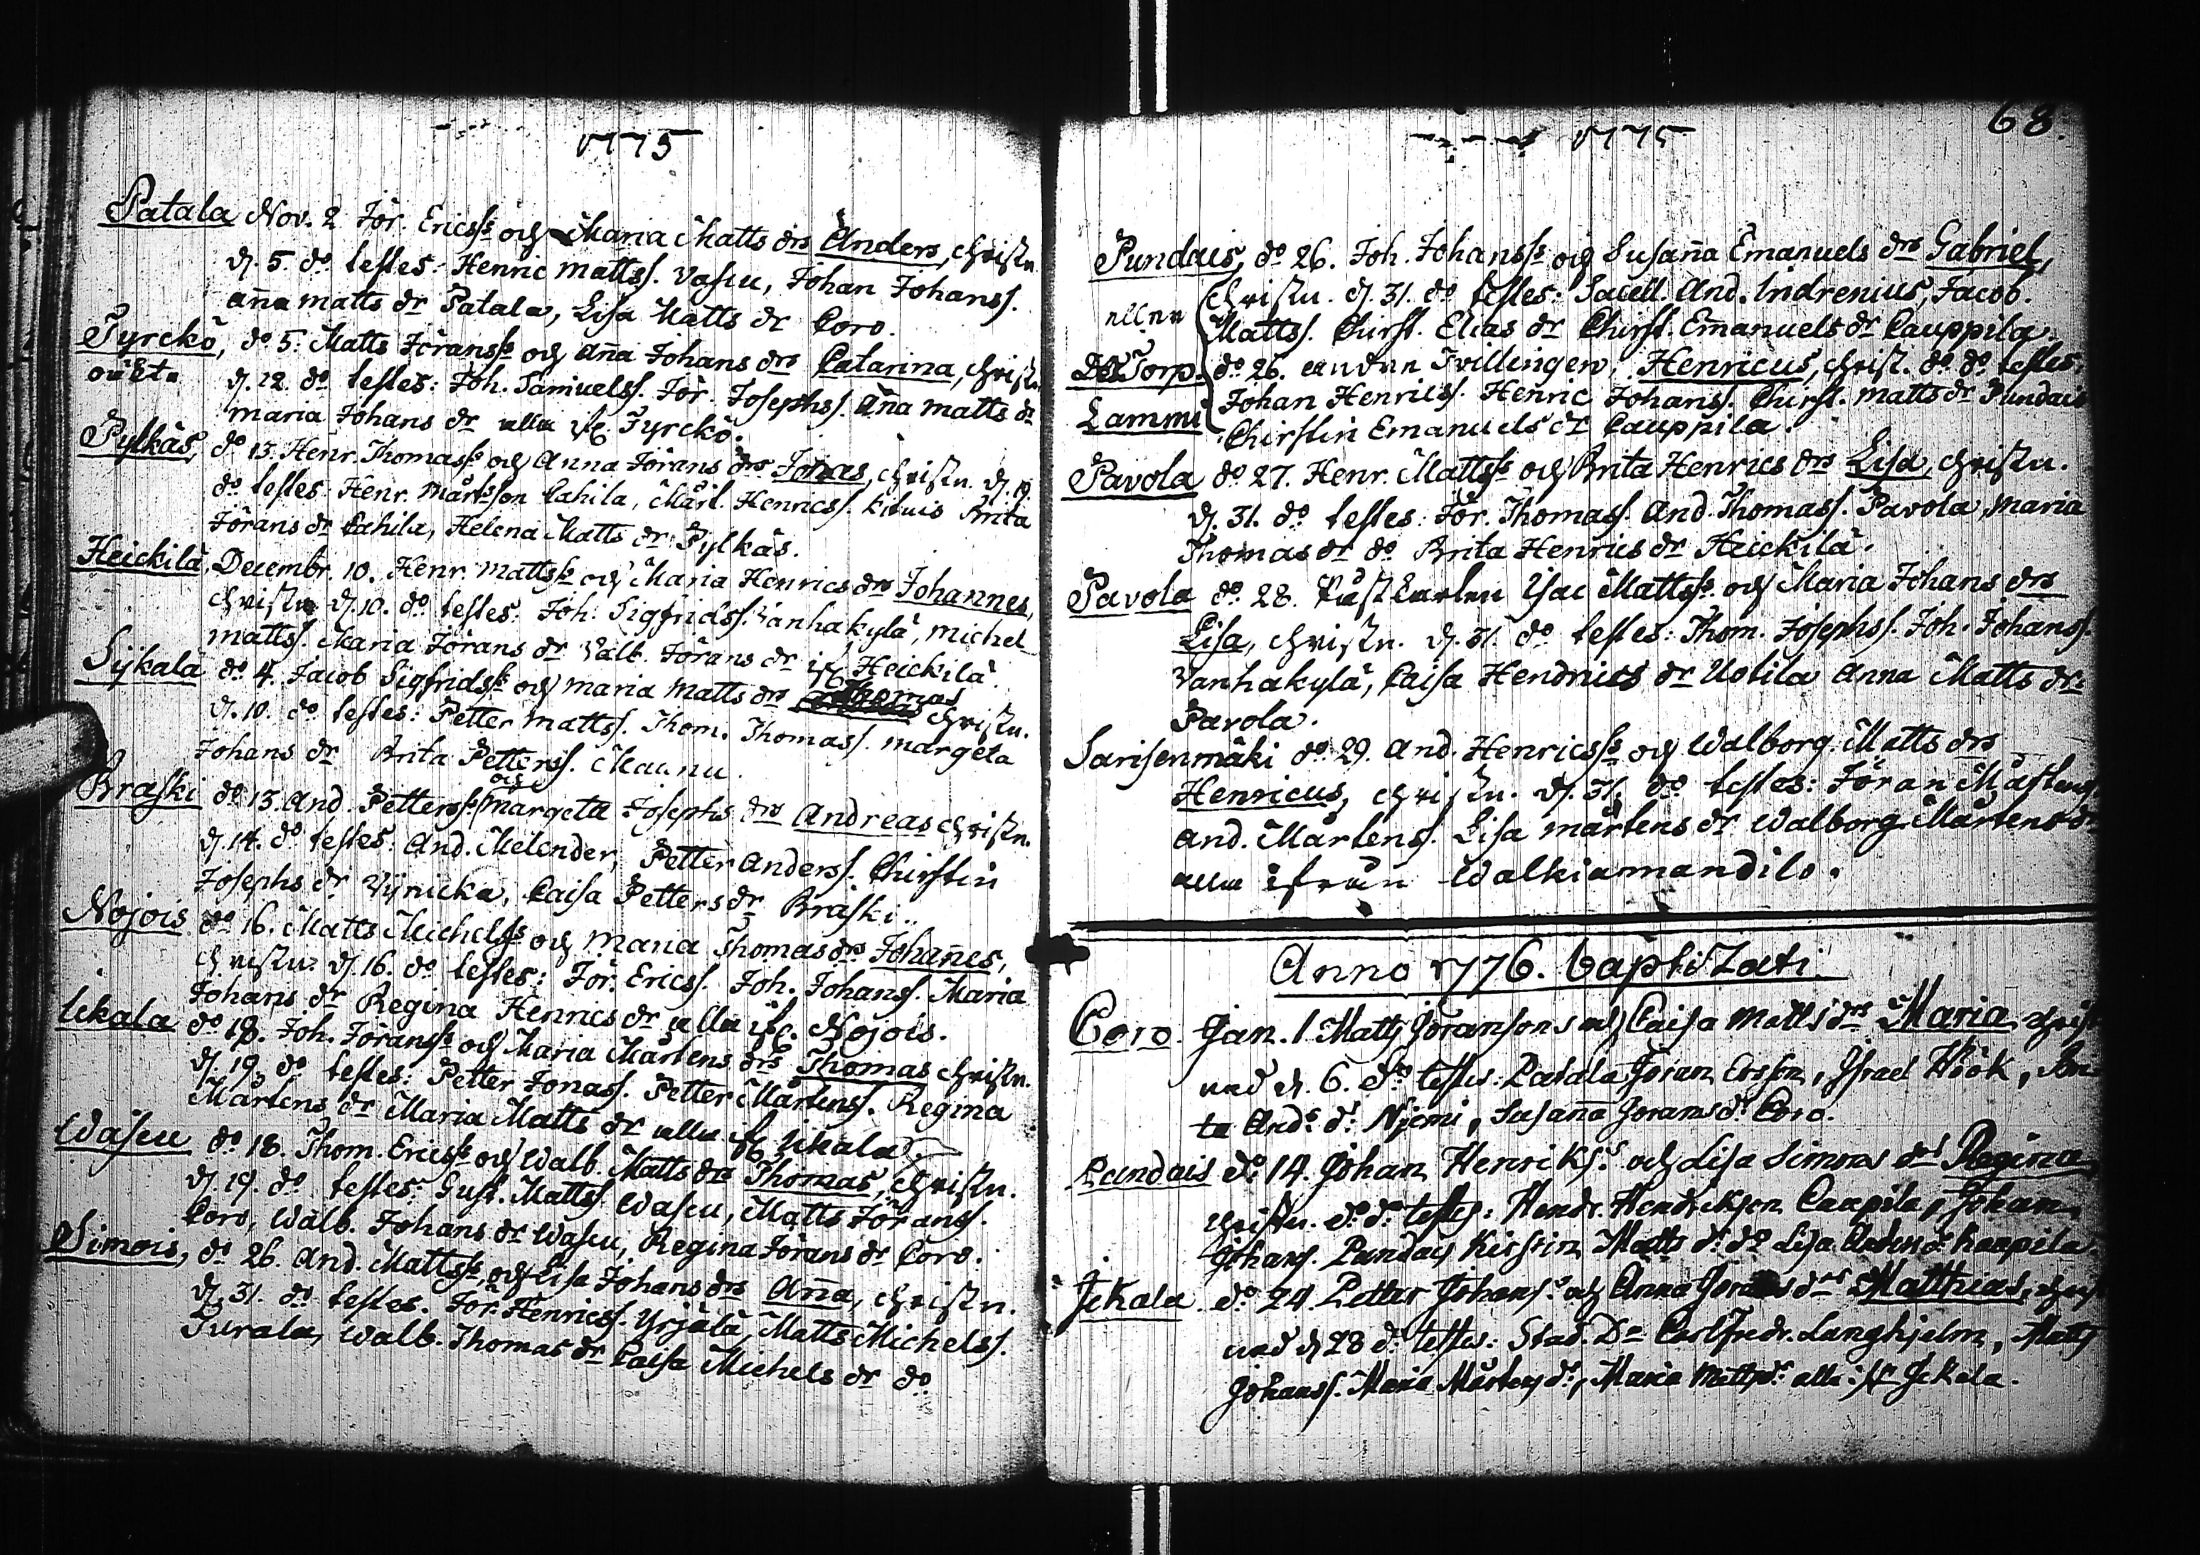 1775
Patala Nov. 2 Jör. Ericss: och Maria Matts drs Anders, christn.
d. 5. do testes: Henric Mattss. Vaseu, Johan Johanss.
Aña Matts dr Patala, Lisa Matts dr Coro.
Tyrckö, do 5. Matts Jöranss: och Aña Johans drs Catarina, christn.
oäckta d. 12. do testes: Joh. Samuelss. Jör. Josephss. Aña Matts dr
Maria Johans dr alla ifr. Tyrckö.
Pylkäs, do 13. Henr. Thomass: och Anna Jörans drs Jonas, christn. d. 19.
do testes: Henr. Mårtsson Cahila, Mårt. Henricss. Brita
Jörans dr Cahila, Helena Matts dr Pylkäs.
Heickilä, Decembr. 10. Henr. Mattss: och Maria Henrics drs Johannes,
christn d. 10. do testes: Joh. Sigfridss. Vanhakylä, Michel
Mattss. Maria Jörans dr Valb. Jörans dr ifr. Heickilä.
Sykalä do 4. Jacob Sigfridss: och Maria Matts drs Thomas christn.
d. 10. do testes: Petter Mattss. Thom. Thomass. Margeta
Johans dr Brita Petterss. Maunu.
Braski do 13. And. Petterss: och Margeta Josephs drs Andreas christn.
d. 14. do testes: And. Melender, Petter Anderss. Chirstin
Josephs dr Vynicka, Caisa Petters dr Braski.
Nojois do 16. Matts Michelss: och Maria Thomas drs Johañes,
christn. d. 16. do testes: Jör. Ericss. Joh. Johanss. Maria
Johans dr Regina Henrics dr alla ifr. Nojois.
Ickala do 18. Joh. Jöranss: och Maria Mårtens drs Thomas christn.
d. 19. do testes: Petter Jonass. Petter Mårtenss. Regina
Mårtens dr Maria Matts dr alla ifr. Ickala
Waseu do 18. Thom. Ericss: och Walb. Matts drs Thomas, christn.
d. 19. do testes: Gust. Mattss. Waseu, Matts Jöranss.
Coro, Walb. Johans dr Waseu, Regina Jörans dr Coro.
Simois, do 26. And. Mattss: och Lisa Johans drs Aña, christn.
d. 31. do testes. Jör. Henricss. Yrjälä, Matts Michelss.
Turala, Walb. Thomas dr Caisa Michels dr do
68.
1775
Pundais, do 26. Joh. Johanss: och Susaña Emanuels drs Gabriel,
eller christn. d. 31. do testes: Sacell. And. Indrenius, Jacob.
Mattss. Chirst. Elias dr Chirst. Emanuels dr Cauppila.
Torp. do 26. andra Tvillingen, Henricus, christ. do do testes:
Lammi Johan Henricss. Henric Johanss. Chirst. Matts dr Pundais
Chirstin Emanuels dr Cauppila.
Pavola do 27. Henr. Mattss: och Brita Henrics drs Lisa, christn.
d. 31. do testes: Jör. Thomass. And. Thomass. Pavola, Maria
Thomas dr do Brita Henrics dr Heickilä.
Pavola do 28. Isac Mattss: och Maria Johans drs
Lisa, christn. d. 31. do testes: Thom. Josephss. Joh. Johanss.
Vanhakylä, Caisa Hendrics dr Uotila Anna Matts dr
Pavola.
Sarisenmäki do 29. And. Henricss: och Walborg Matts drs
Henricus, christn. d. 31. do testes: Jöran Mårtens
And. Mårtenss. Lisa Mårtens dr Walborg Mårtens dr
alla ifrån Walkiamandilo.
Anno 1776. baptizati.
Coro. Jan. 1. Matts Göransons och Caisa Matts drs Maria christ
nad d. 6. do testes: Patala Göran Ersson, Israel Höök, Bri
ta And: dr Njemi, Susaña Görans dr Coro.
Pundais do 14. Johan Henrikss: och Lisa Simons drs Regina
christn. do do testes: Hendr. Hendrickson Caupila, Johan
Johans. Pundais Kirstin Matts dr do Lisa Anders dr Kaupila.
Jckala do 24. Petter Johanss: och Anna Görans drs Matthias, christ
nad d 28 do testes: Stud. Dn Carl Fredr. Langhjelm, Matts
Johanss. Maria Mårtens dr, Maria Matts dr alla ifr Jckala.